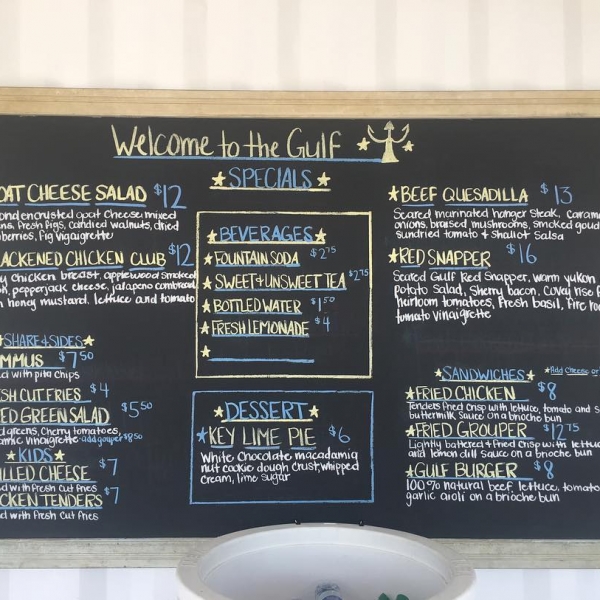 Welcome to the Gulf
SPECIALS
OAT CHEESE SALAD $12
ond encrusted goat cheese, mixed
ns, fresh figs, candied walnuts, dried
berries, fig vigaigrette
LACKENED CHICKEN CLUB $12
y chicken breast, applewood smoked
pepperjack cheese, jalapeno cornbread,
n honey mustard, lettuce and tomato
SHARE & SIDES
MMUS $7.50
ed with pita chips
SH CUT FRIES $4
ED GREEN SALAD $5.50
d greens, cherry tomatoes,
amic vinaigrette add grouper $8.50
KIDS
ILLED CHEESE $7
ed with fresh cut fries
CKEN TENDERS $7
ed with fresh cut fries
BEVERAGES
FOUNTAIN SODA $2.75
SWEET & UNSWEET TEA $2.75
BOTTLED WATER $1.50
FRESH LEMONADE $4
DESSERT
KEY LIME PIE $6
White Chocolate macadamia
nut cookie dough crust, whipped
cream, lime sugar
BEEF QUESADILLA $13
Seared marinated hanger steak, caram
onions, braised mushrooms, smoked goud
sundried tomato & shallot salsa
RED SNAPPER $16
Seared Gulf Red Snapper, warm yukon
potato salad, sherry bacon, Covey rise f
heirloom tomatoes, fresh basil, fire ro
tomato vinaigrette
SANDWICHES Add Cheese or
FRIED CHICKEN $8
Tenders fried crisp with lettuce, tomato and s
buttermilk sauce on a brioche bun
FRIED GROUPER $12.75
Lightly battered & fried crisp with lettuce
and lemon dill sauce on a brioche bun
GULF BURGER $8
100% natural beef, lettuce, tomato
garlic aioli on a brioche bun